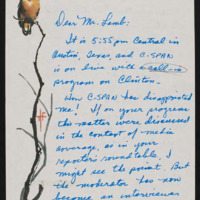 Dear Mr. Lamb:
It is 5:55 pm Central in
Austin, Texas, and C-SPAN
is on live with a call-in
program on Clinton.
How C-SPAN has disappointed
me! If on your program
this matter were discussed
in the context of media
coverage, as in your
reporters roundtable, I
might see the point. But
the moderator has now
become an interviewer